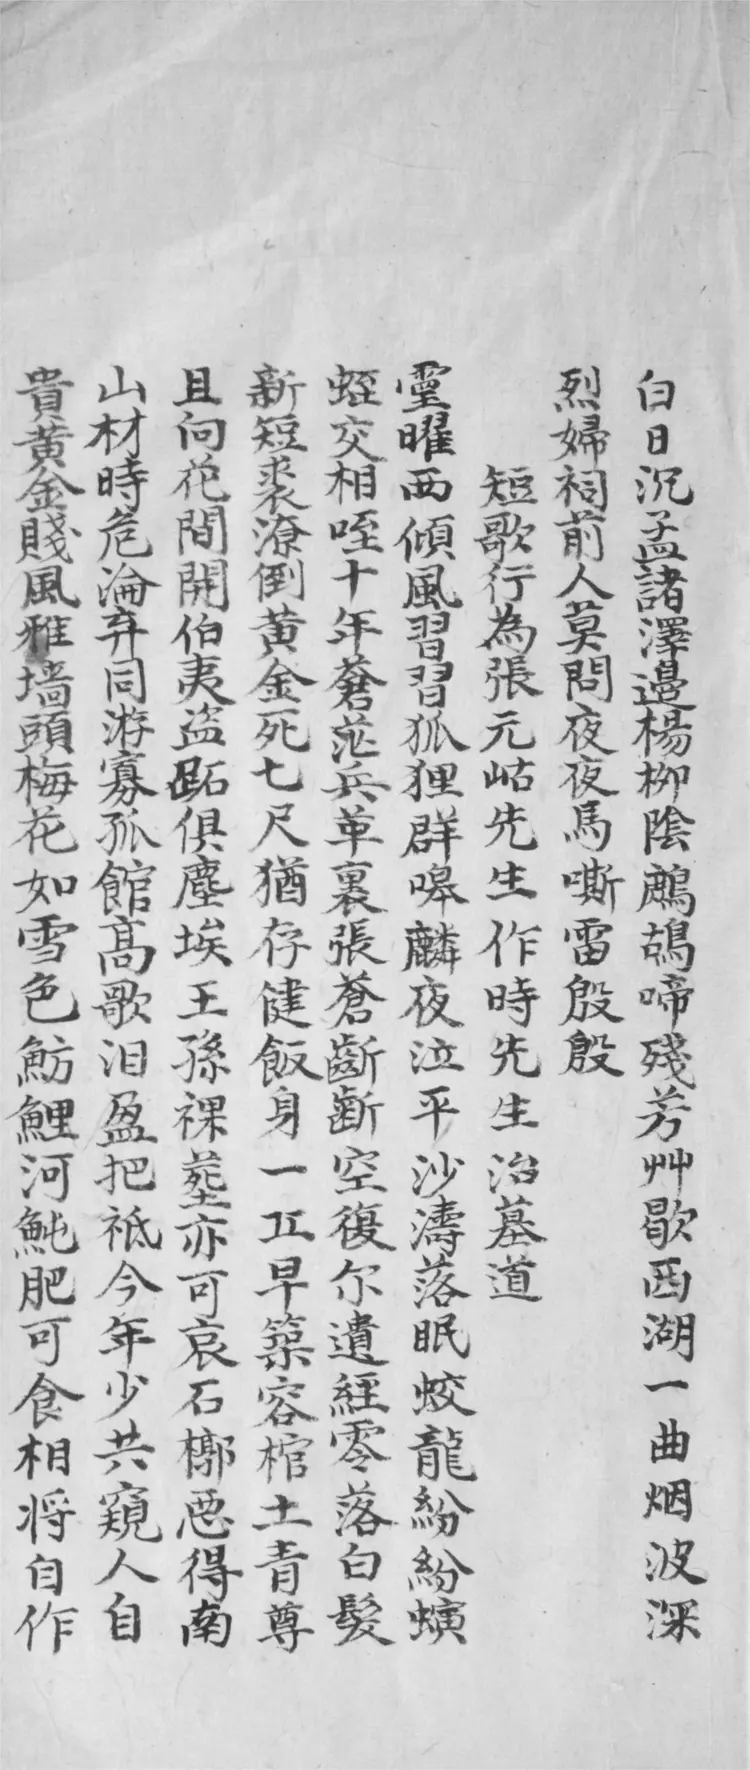 白日沉孟諸澤邊楊柳陰鷓鴣啼殘芳艸歇西湖一曲烟波深
烈婦祠前人莫問夜夜馬嘶雷殷殷
短歌行為張元岵先生作時先生治墓道
靈曜西傾風習習狐狸群嘷麟夜泣平沙濤落眠蛟龍紛紛螾
蛭交相咥十年蒼茫兵革裏張蒼齗齗空復尔遺經零落白髮
新短裘潦倒黃金死七尺猶存健飯身一丘早築容棺土青尊
且向花間開伯夷盜跖俱塵埃王孫裸塟亦可哀石槨惡得南
山材時危淪弃同游寡孤館高歌泪盈把祇今年少共窺人自
貴黃金賤風雅墻頭梅花如雪色魴鯉河魨肥可食相将自作